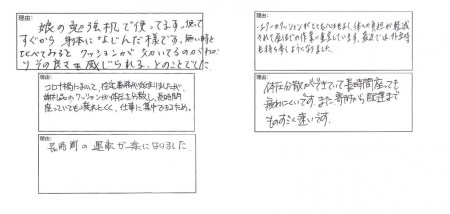 理由:
娘の勉強机で使ってます。使って
すぐから身体になじんだ様です。無い時と
比べてみると クッションが 欠いてるのがわか
りその良さも感じられる、とのことでした
理由:
コロナ禍において、在宅勤務が始まりましたが、
クッションが体圧を分散し、長時間
座っていても疲れにくく、仕事に集中できるため。
理由:
長時間の運転が楽になりました。
理由:
クッションがとても心地よく、体への負担が軽減
されて座ほどの作業に重宝しています。最近では、外出時
も持ち歩くようになりました。
理由:
体圧分散ができていて長時間座っても
疲れにくいです。また、寄附から配達まで
ものすごく速いです。